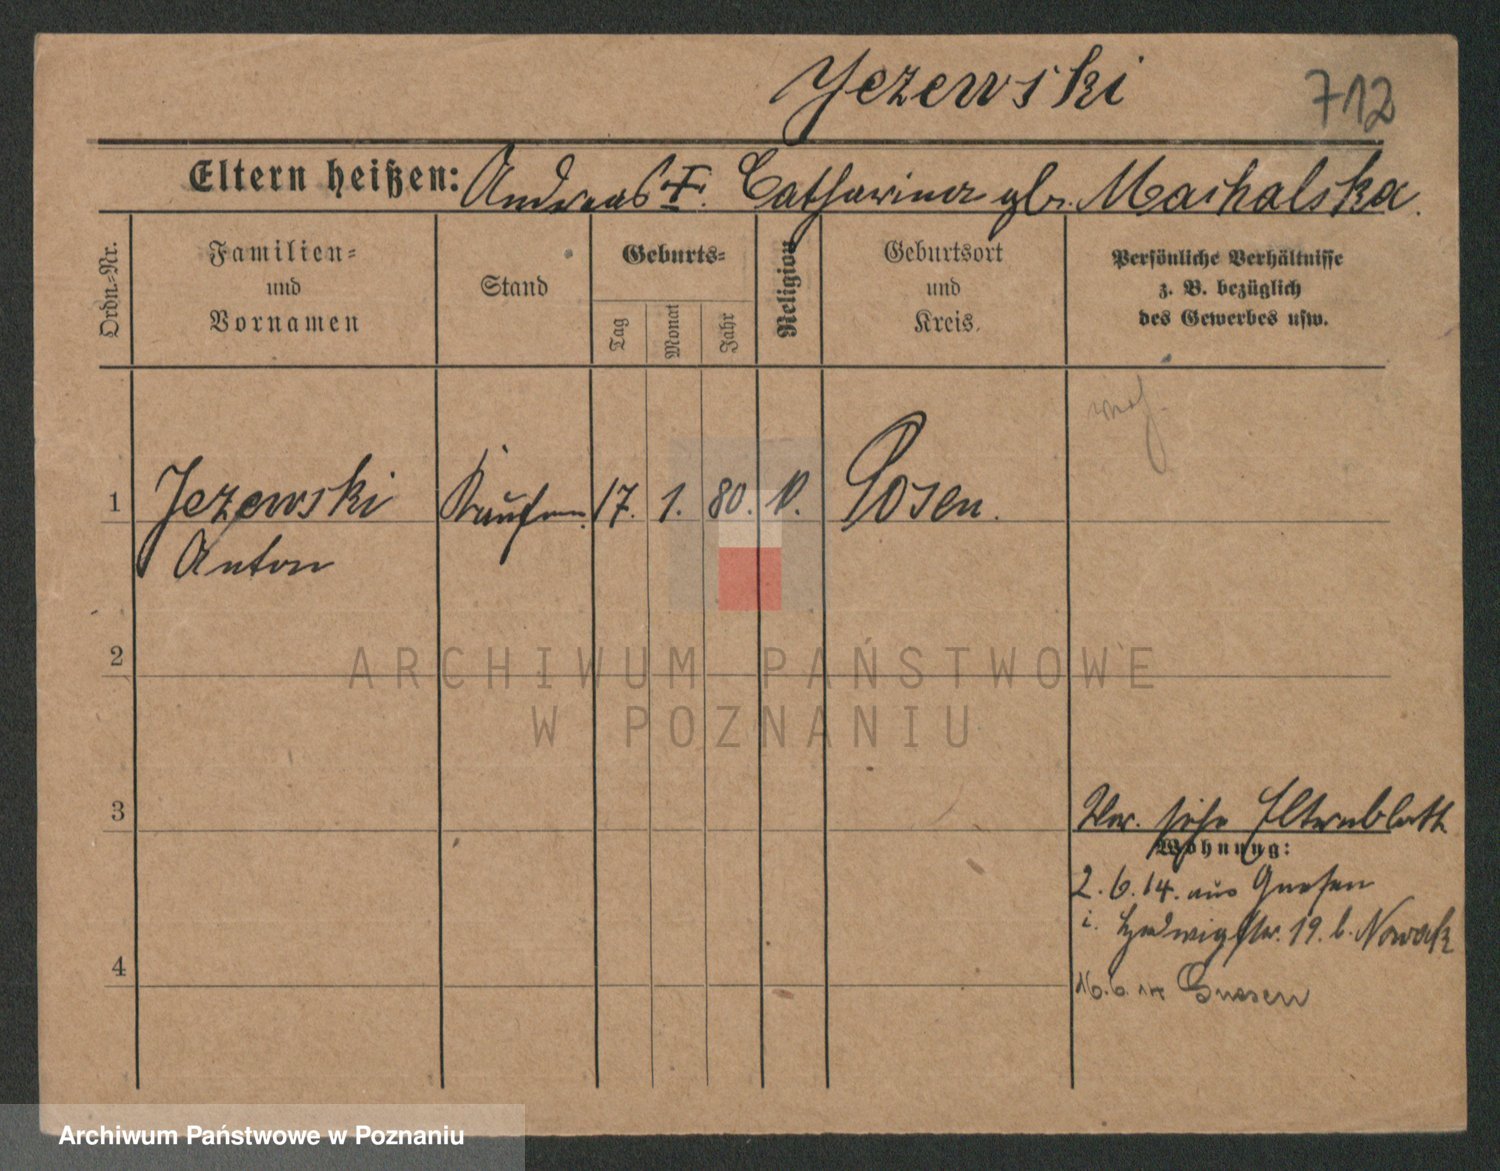 Jezewski
712
Eltern heißen: Andreas u. F. Catharina gb. Machalska.
Ordn.-Nr.
Familien-
und
Vornamen
Stand
Geburts-
Tag
Monat
Jahr
Religion
Geburtsort
und
Kreis.
Persönliche Verhältnisse
z. B. bezüglich
des Gewerbes usw.
1 Jezewski Kaufm. 17. 1. 80. Posen.
Anton
2
ARCHIWUM PAŃSTWOWE
W POZNANIU
3
siehe Elternblatt
Wohnung:
2.6.14. aus Gnesen
i. Hedwigstr. 19. b. Nowak
4
16.6.14 Gnesen
Archiwum Państwowe w Poznaniu